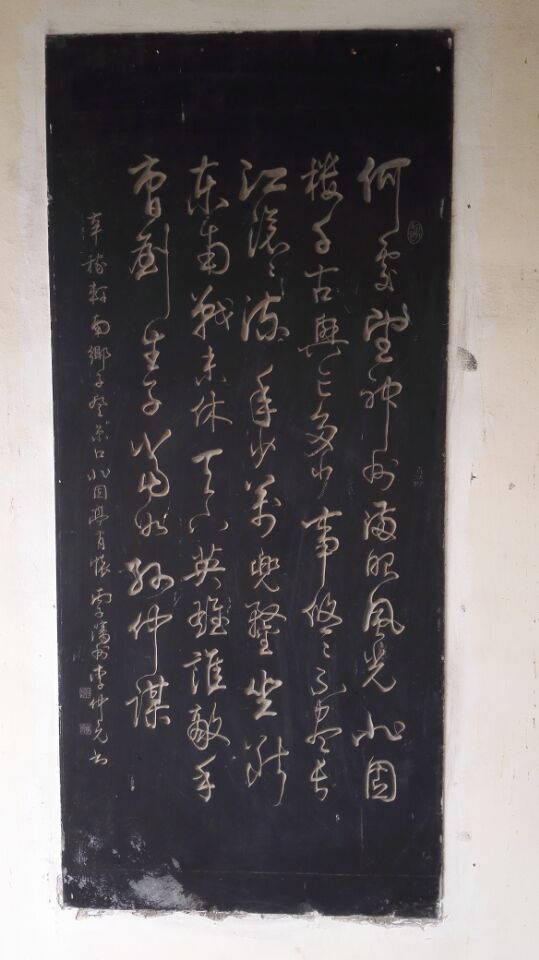 何處望神州滿眼風光北固
樓千古興亡多少事悠々不盡長
江滾々流年少萬兜鍪坐斷
東南戰未休天下英雄誰敵手
曹劉生子當如孫仲謀
辛稼軒南鄉子登京口北固亭有懷李仲书